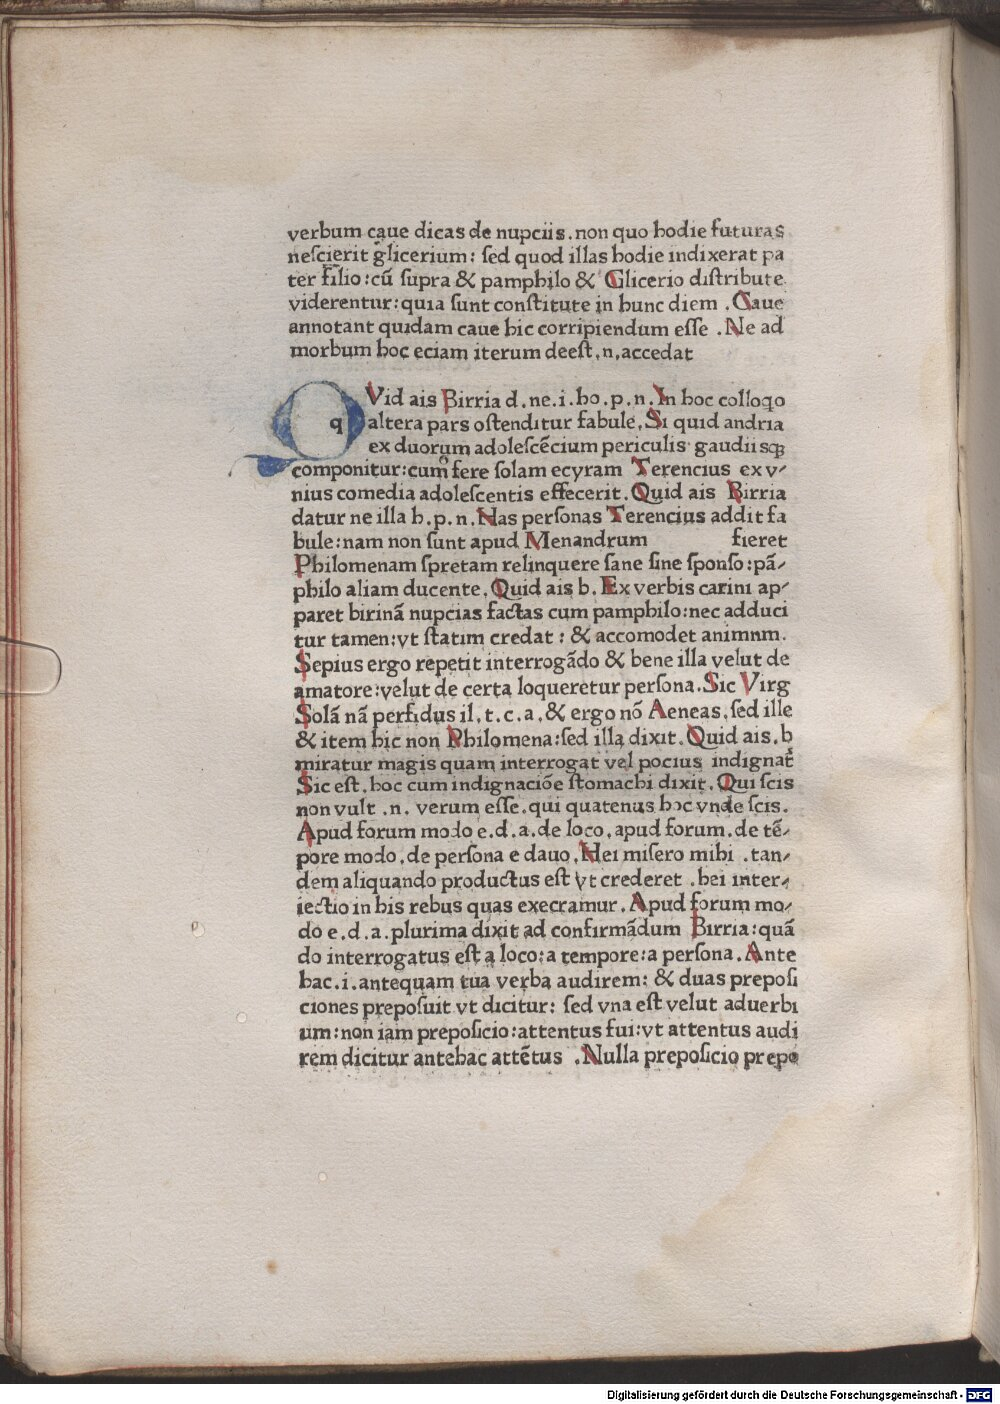 verbum caue dicas de nupciis.non quo hodie futuras
neſcierit glicerium: ſed quod illas hodie indixerat pa
ter filio:cū ſupra & pamphilo & Glicerio diſtribute
viderentur:quia ſunt conſtitute in hunc diem .Caue
annotant quidam caue hic corripiendum eſſe .Ne ad
morbum hoc eciam iterum deeſt.n.accedat
QVid ais Birria d.ne.i.ho.p.n.In hoc colloqo
q altera pars oſtenditur fabule.Si quid andria
ex duorum adoleſcēcium periculis gaudiisqꝫ
componitur:cum fere ſolam ecyram Terencius ex v⸗
nius comedia adoleſcentis effecerit.Quid ais Birria
datur ne illa h.p.n.Has perſonas Terencius addit fa
bule:nam non ſunt apud Menandrum fieret
Philomenam ſpretam relinquere ſane ſine ſponſo:pā⸗
philo aliam ducente.Quid ais b.Ex verbis carini ap⸗
paret birinā nupcias factas cum pamphilo:nec adduci
tur tamen:vt ſtatim credat: & accomodet animnm.
Sepius ergo repetit interrogādo & bene illa velut de
amatore:velut de certa loqueretur perſona.Sic Virg
Solā nā perfidus il.t.c.a.& ergo nō Aeneas.ſed ille
& item hic non Philomena:ſed illa dixit.Quid ais.b
miratur magis quam interrogat vel pocius indignat̄
Sic eſt.hoc cum indignaciōe ſtomachi dixit.Qui ſcis
non vult .n. verum eſſe.qui quatenus hoc vnde ſcis.
Apud forum modo e.d.a.de loco.apud forum.de tē⸗
pore modo.de perſona e dauo.Hei miſero mihi .tan⸗
dem aliquando productus eſt vt crederet .hei inter⸗
iectio in his rebus quas execramur.Apud forum mo⸗
do e.d.a.plurima dixit ad confirmādum Birria:quā
do interrogatus eſt a loco:a tempore:a perſona.Ante
hac.i.antequam tua verba audirem: & duas prepoſi
ciones prepoſuit vt dicitur: ſed vna eſt velut aduerbi
um:non iam prepoſicio:attentus fui:vt attentus audi
rem dicitur antehac attētus .Nulla prepoſicio prepo
Digitalisierung gefördert durch die Deutsche Forschungsgemeinschaft - DFG